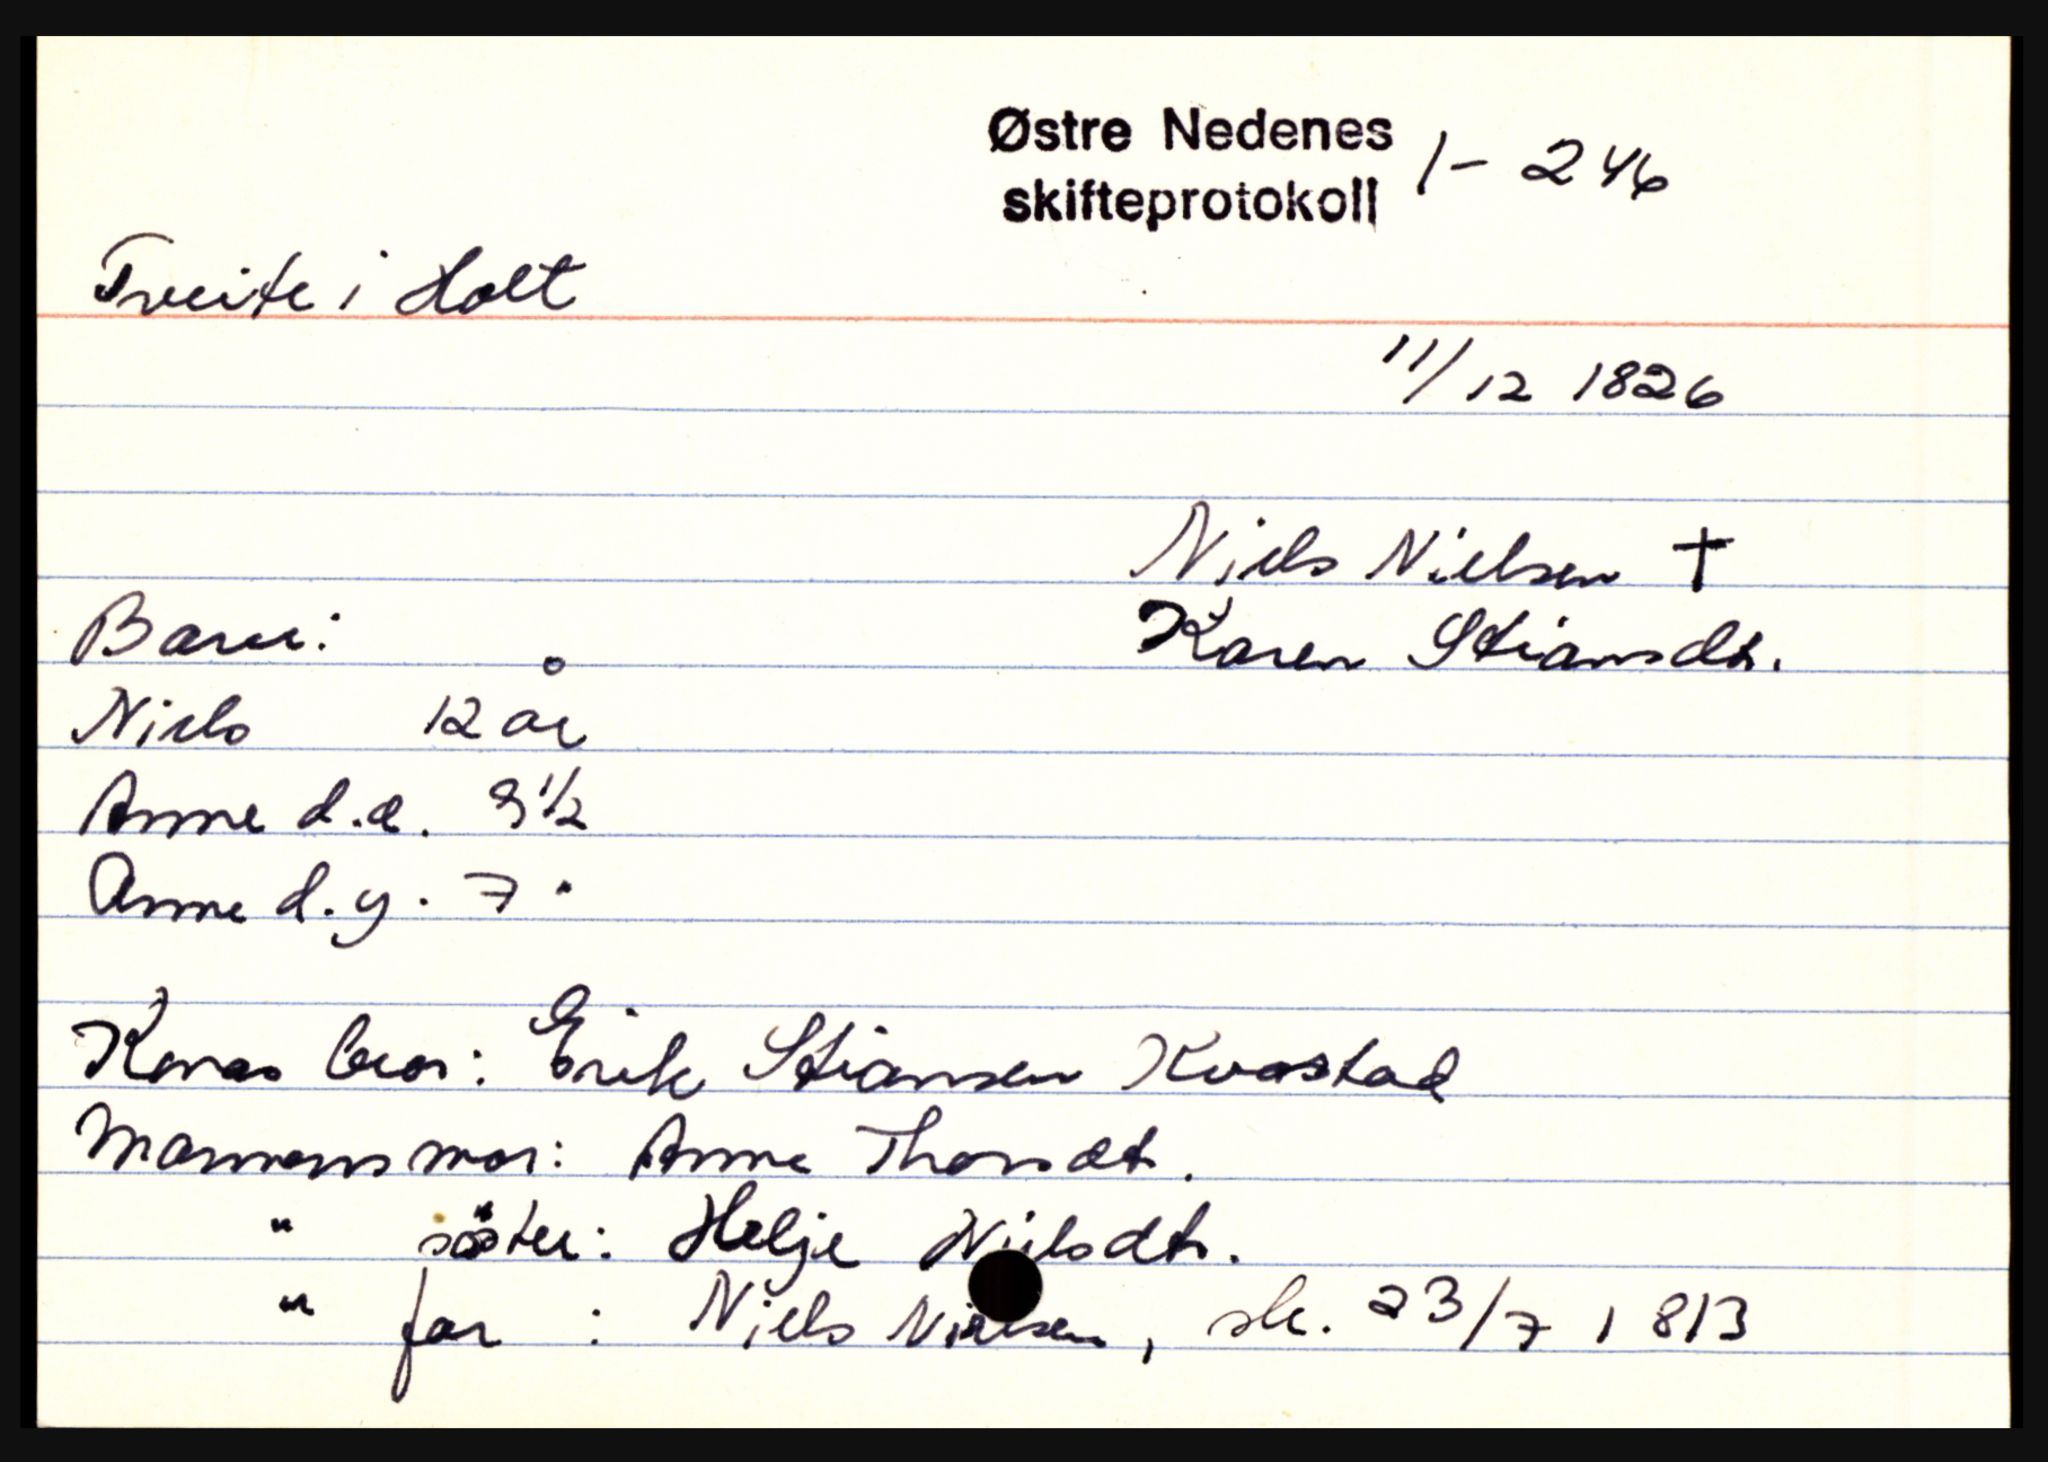 Østre Nedenes
skifteprotokoll 1-246
Tveite i Holt
11/12 1826
Niels Nielsen †
Karen Stiansdt.
Barn:
Niels 12 år
Anne d.e. 9 1/2
Anne d.y. 7 "
Konas bror: Erik Stiansen Kvastad
Mannens mor: Anne Thorsdt.
" söster: Helje Nielsdt.
" far : Niels Nielsen, sk. 23/7 1813